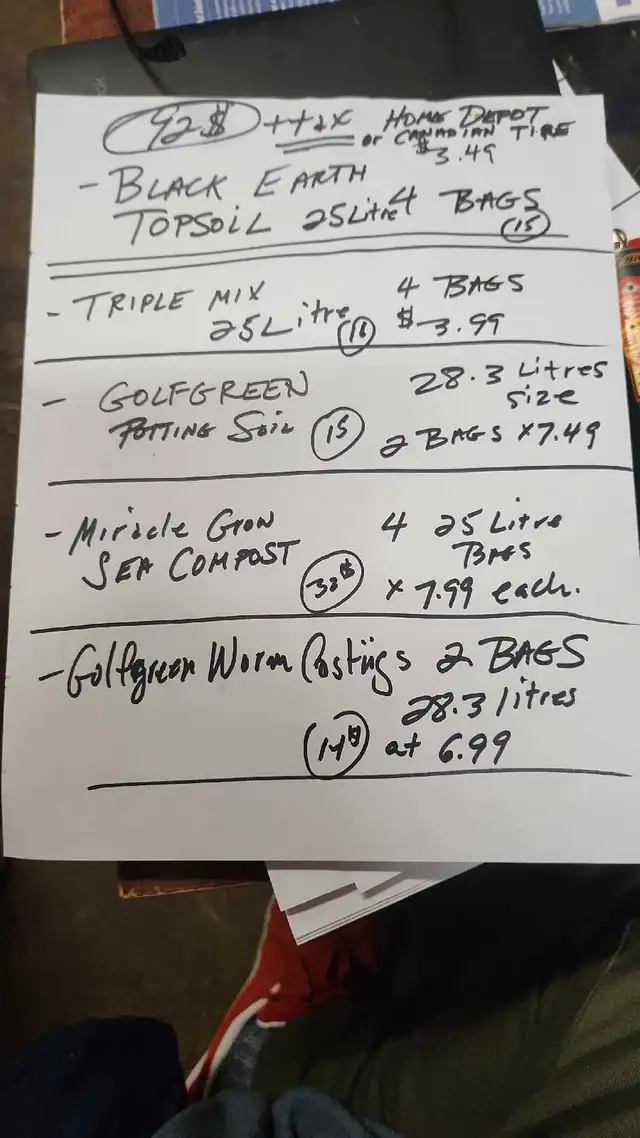 92$ ++tax HOME DEPOT
or CANADIAN TIRE
$3.49
- BLACK EARTH
TOPSOIL 25Litre 4 BAGS
15
- TRIPLE MIX 4 BAGS
25Litre 16 $3.99
- GOLFGREEN 28.3 Litres
size
POTTING Soil 15 2 BAGS x7.49
- Miracle Grow 4 25 Litre
SEA COMPOST BAGS
32$ x 7.99 each.
- Golfgreen Worm Castings 2 BAGS
28.3 litres
14$ at 6.99